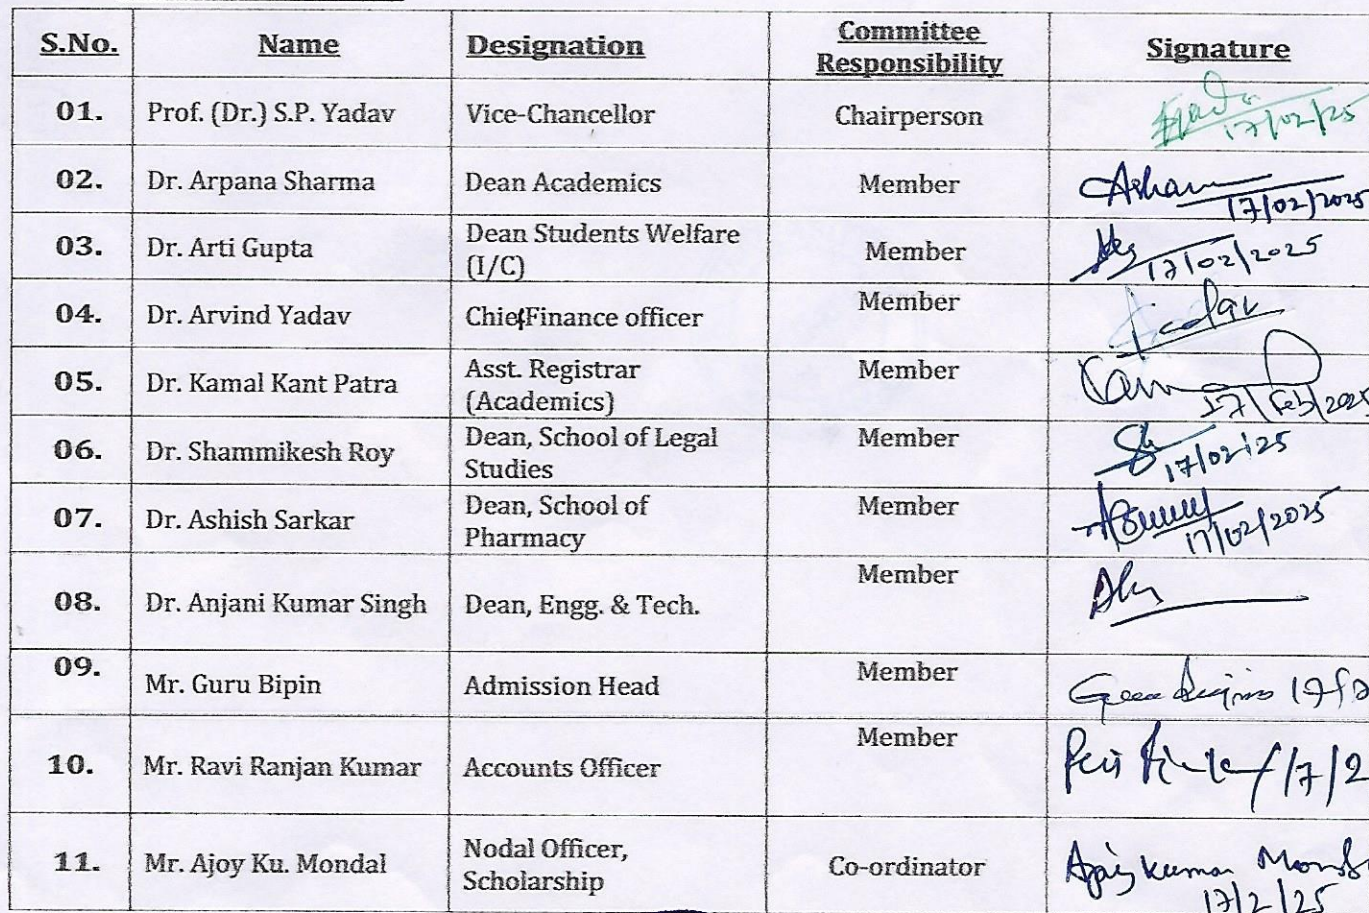 S.No. Name Designation Committee Responsibility Signature
01. Prof. (Dr.) S.P. Yadav Vice-Chancellor Chairperson 17/02/25
02. Dr. Arpana Sharma Dean Academics Member 17/02/2025
03. Dr. Arti Gupta Dean Students Welfare (I/C) Member 17/02/2025
04. Dr. Arvind Yadav Chief Finance officer Member
05. Dr. Kamal Kant Patra Asst. Registrar (Academics) Member 17/Feb/2025
06. Dr. Shammikesh Roy Dean, School of Legal Studies Member 17/02/25
07. Dr. Ashish Sarkar Dean, School of Pharmacy Member 17/02/2025
08. Dr. Anjani Kumar Singh Dean, Engg. & Tech. Member
09. Mr. Guru Bipin Admission Head Member
10. Mr. Ravi Ranjan Kumar Accounts Officer Member
11. Mr. Ajoy Ku. Mondal Nodal Officer, Scholarship Co-ordinator 17/2/25